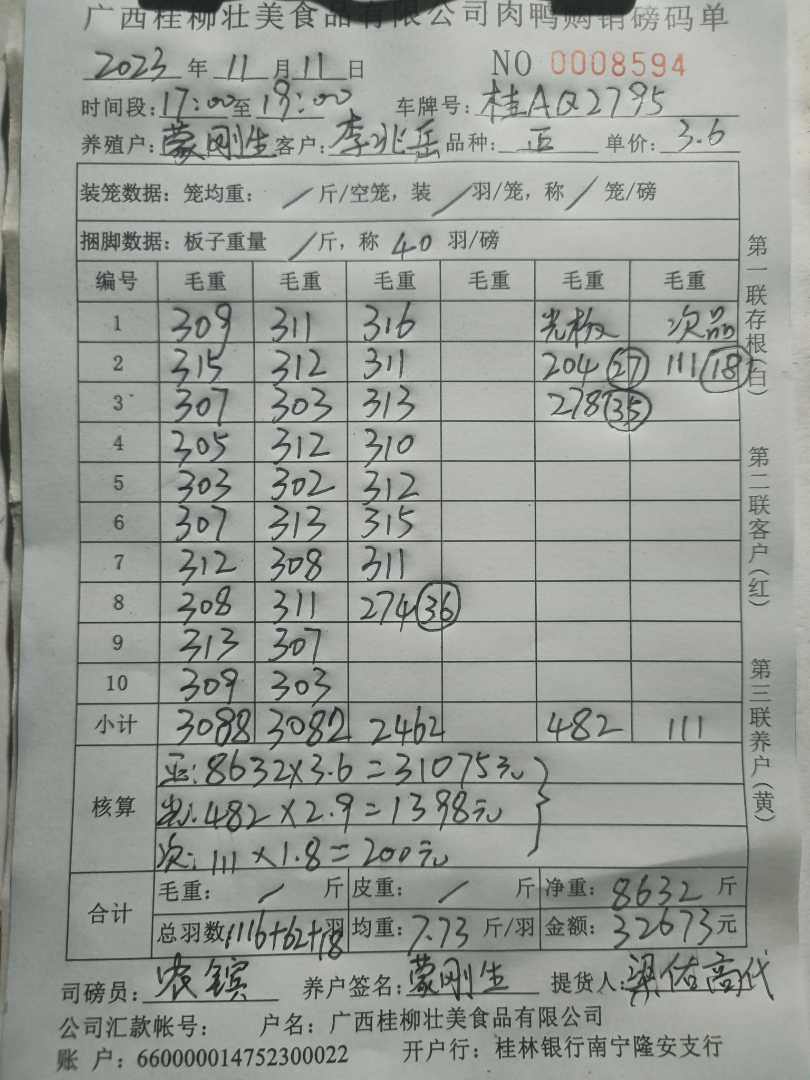 广西桂柳壮美食品有限公司肉鸭购销磅码单
2023 年 11 月 11 日 NO 0008594
时间段: 17:00 至 19:00 车牌号: 桂AQ2795
养殖户: 蒙刚生 客户: 李兆岳 品种: 正 单价: 3.6
装笼数据: 笼均重: / 斤/空笼, 装 / 羽/笼, 称 / 笼/磅
捆脚数据: 板子重量 / 斤, 称 40 羽/磅
编号 毛重 毛重 毛重 毛重 毛重 毛重
1 309 311 316 光板 次品
2 315 312 311 204 27 111 18
3 307 303 313 278 35
4 305 312 310
5 303 302 312
6 307 313 315
7 312 308 311
8 308 311 274 36
9 313 307
10 309 303
小计 3088 3082 2462 482 111
核算
正: 8632×3.6=31075元
光: 482×2.9=1398元
次: 111×1.8=200元
合计
毛重: / 斤 皮重: / 斤 净重: 8632 斤
总羽数: 1116+62+18 羽 均重: 7.73 斤/羽 金额: 32673 元
司磅员: 农镔 养户签名: 蒙刚生 提货人: 梁佑高代
公司汇款帐号: 户名: 广西桂柳壮美食品有限公司
账 户: 660000014752300022 开户行: 桂林银行南宁隆安支行
第一联存根(白)
第二联客户(红)
第三联养户(黄)